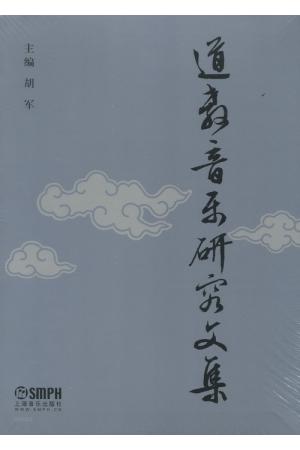 道教音乐研究文集
主编 胡军
SMPH
上海音乐出版社
WWW.SMPH.CN